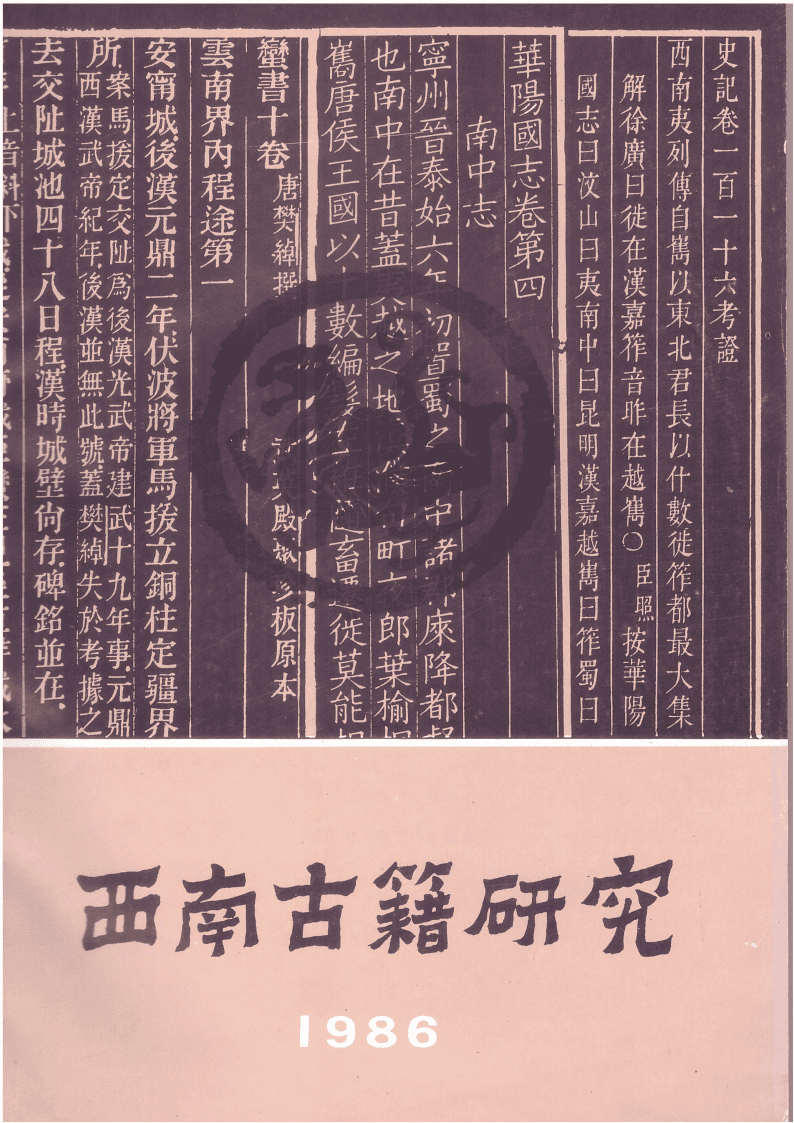 史記卷一百一十六考證
西南夷列傳自嶲以東北君長以什數徙筰都最大集
解徐廣曰徙在漢嘉筰音昨在越嶲○臣照按華陽
國志曰汶山曰夷南中曰昆明漢嘉越嶲曰筰蜀曰
華陽國志卷第四
南中志
寧州晉泰始六年初置蜀之南中諸郡庲降都
也南中在昔蓋夷越之地町夜郎葉榆
嶲唐侯王國以十數編髮畜遷徙莫能
蠻書十卷 唐樊綽撰 武英殿聚珍板原本
雲南界內程途第一
安甯城後漢元鼎二年伏波將軍馬援立銅柱定疆界
所案馬援定交阯爲後漢光武帝建武十九年事元鼎
西漢武帝紀年後漢並無此號蓋樊綽失於考據之
去交阯城池四十八日程漢時城壁尙存碑銘並在
西南古籍研究
1986